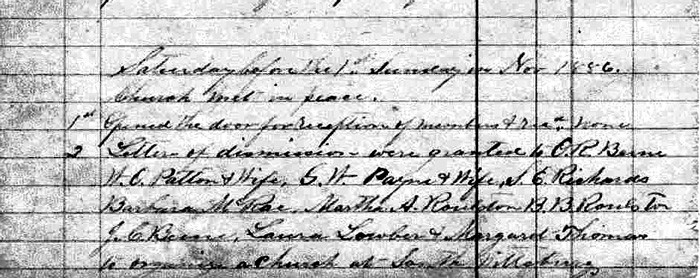 Saturday before the 1st Sunday in Nov 1886.
Church met in peace.
1st Opened the door for reception of members & rec'd none
2 Letters of dismission were granted to O. R. Berne
W. O. Patton & Wife, G. W. Payne & Wife, S. E. Richards
Barbara McRae, Martha A. Roulston B. B. Roulston
J. C. Beene, Laura Lowber & Margard Thomas
to organize a church at South Pittsburg